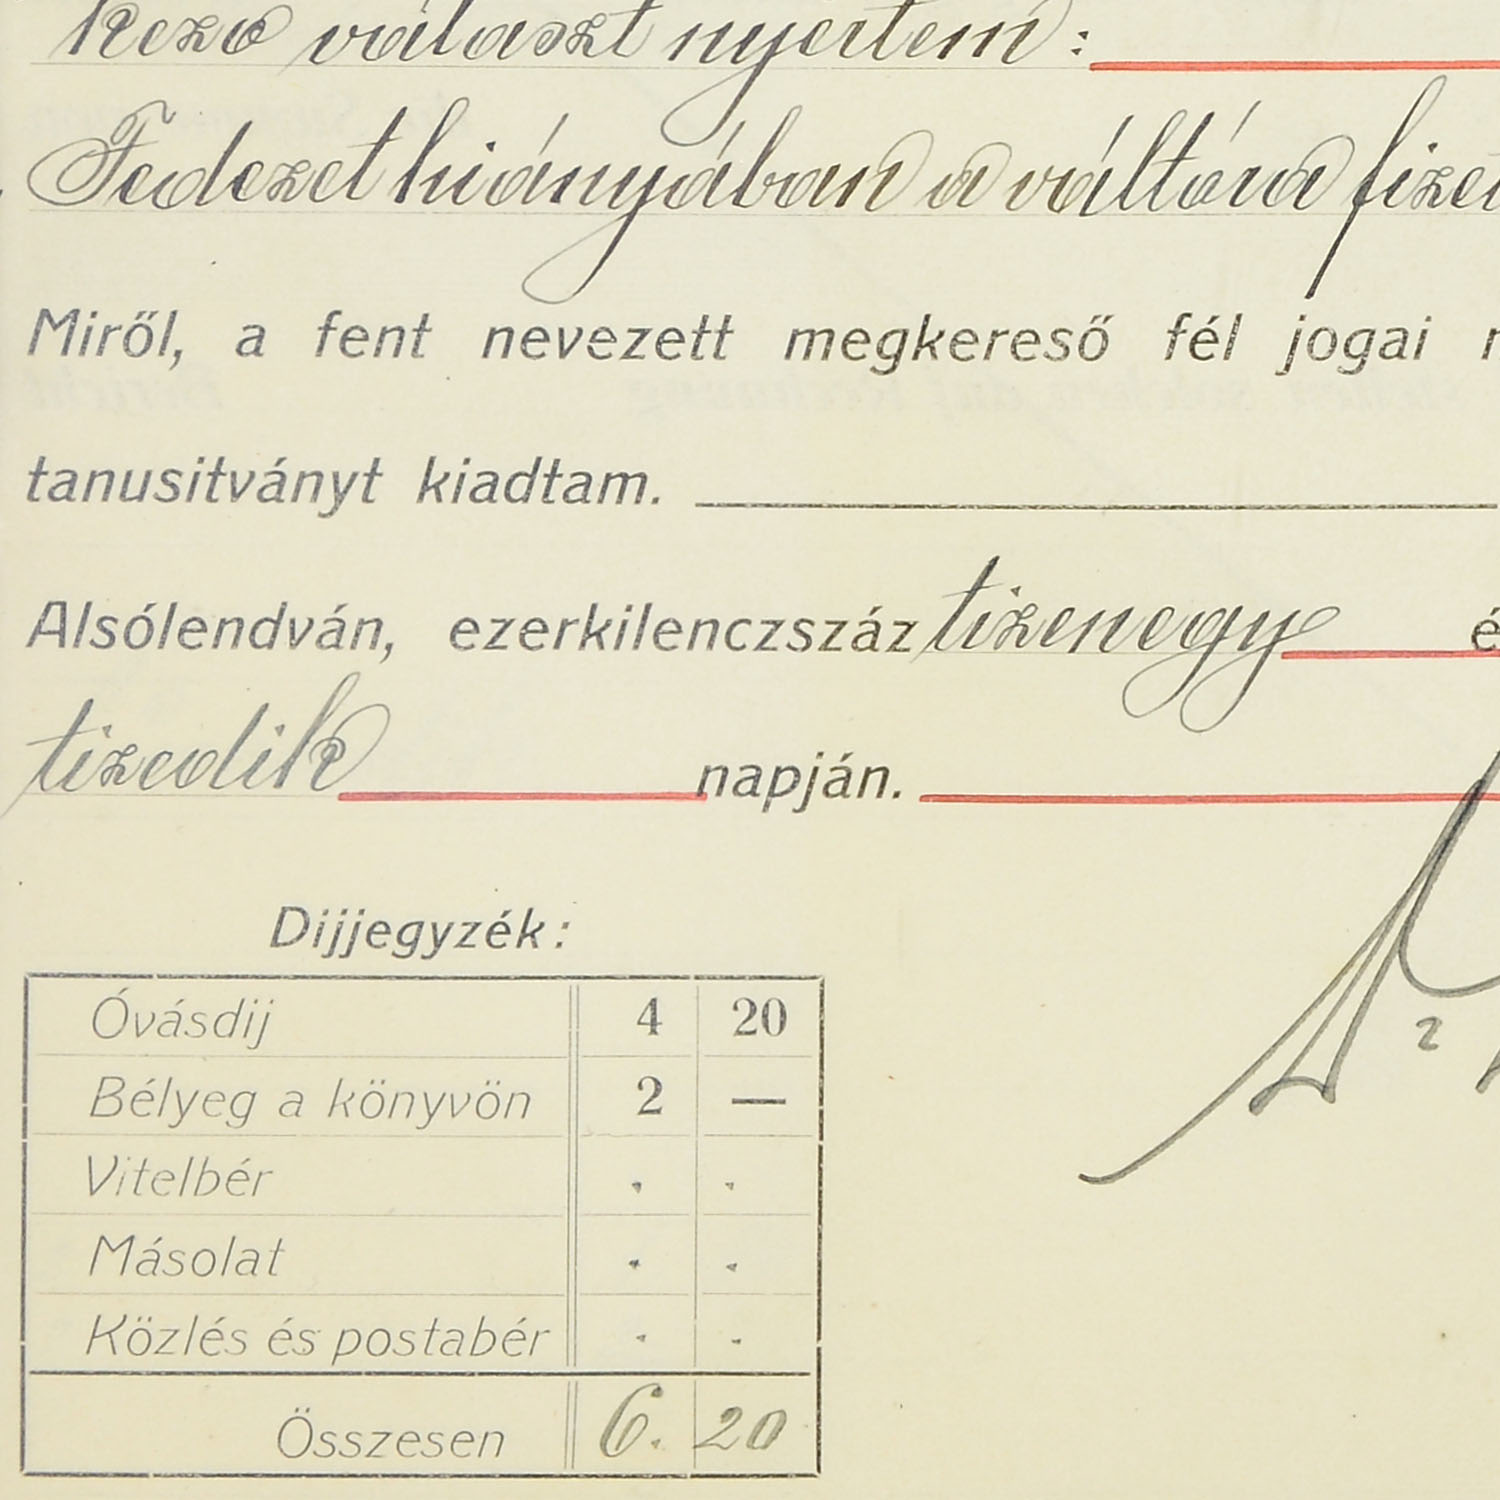 kező választ nyertem:
Fedezet hiányában a váltóra fizet
Miről, a fent nevezett megkereső fél jogai
tanusitványt kiadtam.
Alsólendván, ezerkilenczszáz tizenegy é
tizedik napján.
Dijjegyzék:
Óvásdij 4 20
Bélyeg a könyvön 2 —
Vitelbér . .
Másolat . .
Közlés és postabér . .
Összesen 6. 20